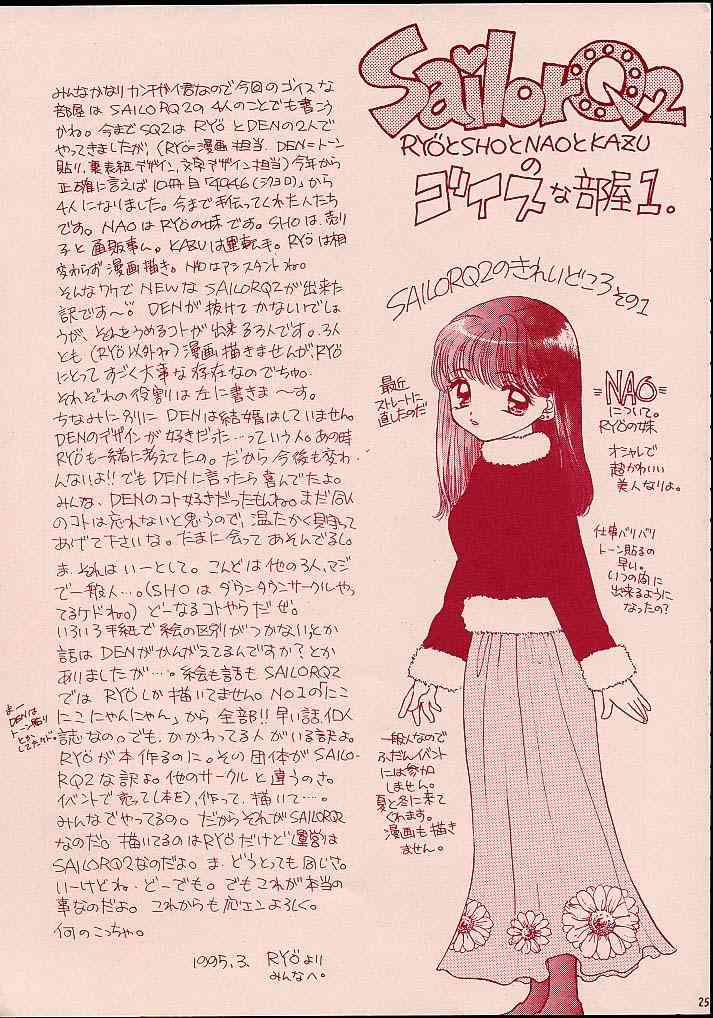 SailorQ2
RYÖとSHOとNAOとKAZU
の
ゴイスな部屋1。
みんなかなりカンチガイ君なので今回のゴイスな
部屋はSAILORQ2の4人のことでも書こう
かね。今までSQ2はRYÖとDENの2人で
やってきましたが、(RYÖ=漫画担当、DEN=トーン
貼り、裏表紙デザイン、文字デザイン担当)今年から
正確に言えば10冊目「4946(シクヨロ)」から
4人になりました。今まで手伝ってくれた人たち
です。NAOはRYÖの妹です。SHOは、売り
子と通販事ム。KAZUは運転手。RYÖは相
変わらず漫画描き。NAOはアシスタントね。
そんなワケでNEWなSAILORQ2が出来た
訳です〜。DENが抜けてかないでしょ
うが、それをうめるコトが出来る3人です。3人
とも(RYÖ以外ね)漫画描きませんがRYÖ
にとってすごく大事な存在なのでちゅ。
それぞれの役割りは左に書きま〜す。
ちなみに別にDENは結婚はしていません。
DENのデザインが好きだった…っていう人。あの時
RYÖも一緒に考えてたの。だから今後も変わ
んないよ!!でもDENに言ったら喜んでたよ。
みんな、DENのコト好きだったもんね。まだ同人
のコトは忘れないと思うので、温たかく見守って
あげて下さいな。たまに会ってあそんでるし。
ま、それはいーとして。こんどは他の3人、マジ
で一般人…。(SHOはダウンタウンサークルやっ
てるケドね。)どーなるコトやらだぜ。
いろいろ手紙で絵の区別がつかない、とか
話はDENがかんがえてるんですか?とか
ありましたが…。絵も話もSAILORQ2
ではRYÖしか描いてません。NO1の「にこ
にこにゃんにゃん」から全部!!早い話、個人
誌なの。でも、かかわってる人がいる訳よ。
RYÖが本作るのに。その団体がSAILO-
RQ2な訳よ。他のサークルと違うのさ。
イベントで売って(本を)、作って、描いて…。
みんなでやってるの。だからそれがSAILORQ2
なのだ。描いてるのはRYÖだけど運営は
SAILORQ2なのだよ。ま、どうとっても同じさ。
いーけどね、どーでも。でもこれが本当の
事なのだよ。これからも応エンよろしく。
何のこっちゃ。
1995.3. RYÖより
みんなへ。
まー
DENは
トーン貼り
とか
してたケド。
SAILORQ2のきれいどころその1
最近
ストレートに
直したのだ
=NAO=
について。
RYÖの妹
オシャレで
超かわいい
美人なりよ。
仕事バリバリ
トーン貼るの
早い。
いつの間に
出来るように
なったの?
一般人なので
ふだんイベント
には参加
しません。
夏と冬に来て
くれます。
漫画も描き
ません。
25